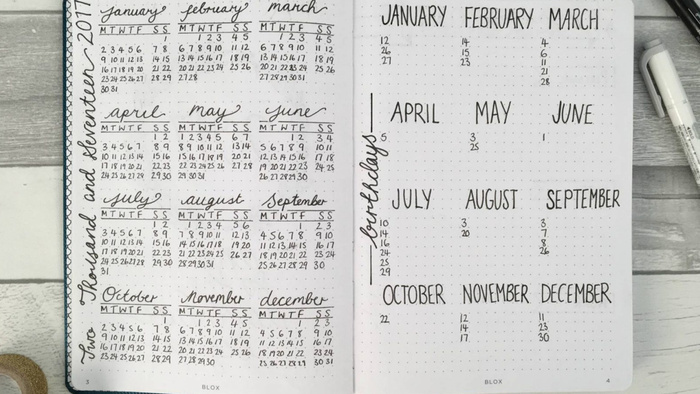 Two Thousand and Seventeen 2017
january february march
M T W T F S S M T W T F S S M T W T F S S
1 1 2 3 4 5 1 2 3 4 5
2 3 4 5 6 7 8 6 7 8 9 10 11 12 6 7 8 9 10 11 12
9 10 11 12 13 14 15 13 14 15 16 17 18 19 13 14 15 16 17 18 19
16 17 18 19 20 21 22 20 21 22 23 24 25 26 20 21 22 23 24 25 26
23 24 25 26 27 28 29 27 28 27 28 29 30 31
30 31
april may june
M T W T F S S M T W T F S S M T W T F S S
1 2 1 2 3 4 5 6 7 1 2 3 4
3 4 5 6 7 8 9 8 9 10 11 12 13 14 5 6 7 8 9 10 11
10 11 12 13 14 15 16 15 16 17 18 19 20 21 12 13 14 15 16 17 18
17 18 19 20 21 22 23 22 23 24 25 26 27 28 19 20 21 22 23 24 25
24 25 26 27 28 29 30 29 30 31 26 27 28 29 30
July august September
M T W T F S S M T W T F S S M T W T F S S
1 2 1 2 3 4 5 6 1 2 3
3 4 5 6 7 8 9 7 8 9 10 11 12 13 4 5 6 7 8 9 10
10 11 12 13 14 15 16 14 15 16 17 18 19 20 11 12 13 14 15 16 17
17 18 19 20 21 22 23 21 22 23 24 25 26 27 18 19 20 21 22 23 24
24 25 26 27 28 29 30 28 29 30 31 25 26 27 28 29 30
31
October November december
M T W T F S S M T W T F S S M T W T F S S
1 1 2 3 4 5 1 2 3
2 3 4 5 6 7 8 6 7 8 9 10 11 12 4 5 6 7 8 9 10
9 10 11 12 13 14 15 13 14 15 16 17 18 19 11 12 13 14 15 16 17
16 17 18 19 20 21 22 20 21 22 23 24 25 26 18 19 20 21 22 23 24
23 24 25 26 27 28 29 27 28 29 30 25 26 27 28 29 30 31
3 BLOX
birthdays
JANUARY FEBRUARY MARCH
12 14 4
26 15 6
27 23 11
21
28
APRIL MAY JUNE
5 3 1
25
JULY AUGUST SEPTEMBER
10 3 3
14 20 7
16 8
24 26
25
29
OCTOBER NOVEMBER DECEMBER
22 12 11
14 23
17 30
BLOX 4